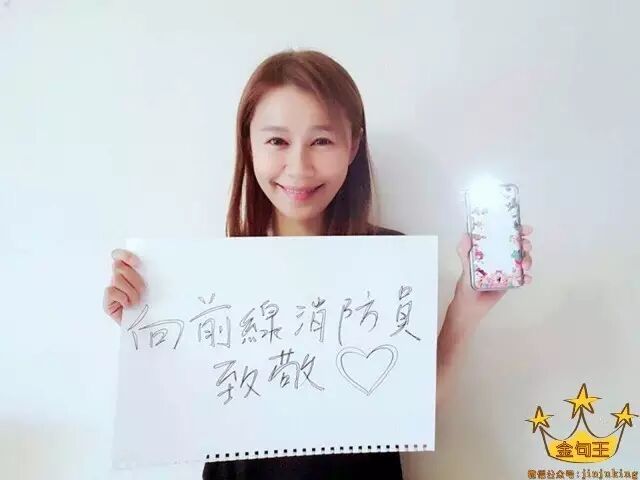 向前線消防員
致敬♡
金句王
微信公众号:jinjuking